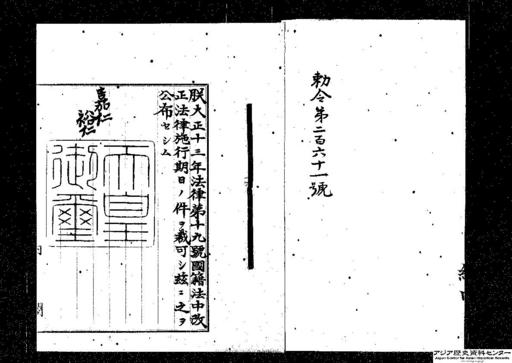 勅令第二百六十一號
朕大正十三年法律第十九號國籍法中改
正法律施行期日ノ件ヲ裁可シ玆ニ之ヲ
公布セシム
嘉仁
裕仁
天皇
御璽
内閣
アジア歴史資料センター
Japan Center for Asian Historical Records